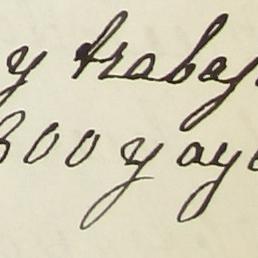 y trabaj
300 y ayu